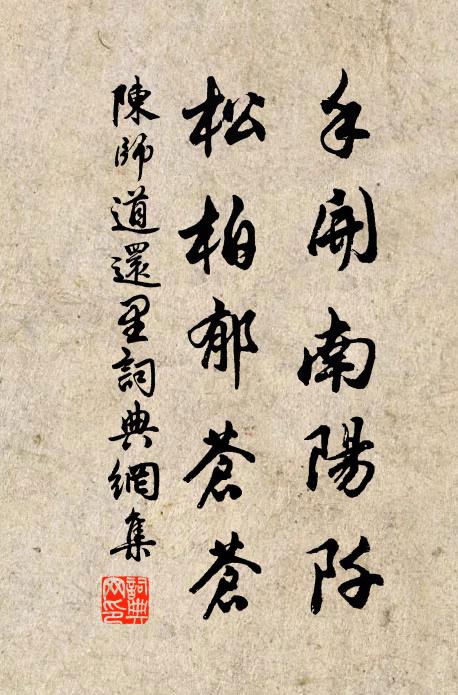 手開南陽阡
松柏郁蒼蒼
陳師道還里詞典網集
詞典網印